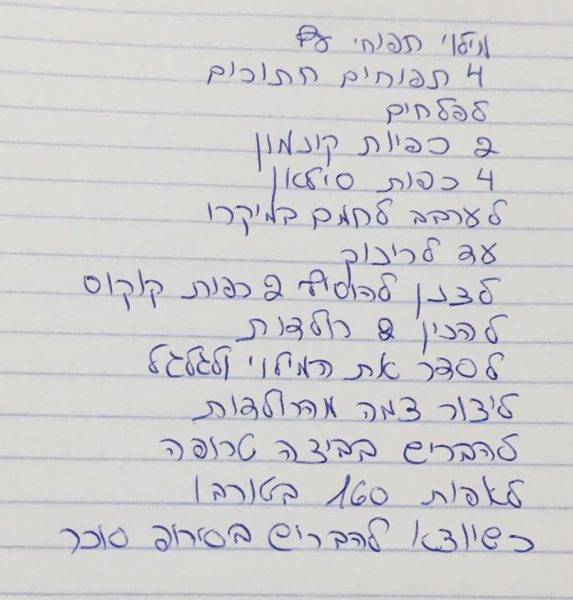 מילוי תפוחי עץ
4 תפוחים חתוכים
לפלחים
2 כפיות קינמון
4 כפות סילאן
לערבב לחמם במיקרו
עד לריכוך
לצנן להוסיף 2 כפות קוקוס
להכין 2 רולדות
לסדר את המילוי ולגלגל
ליצור צמה מהרולדות
להבריש בביצה טרופה
לאפות 160 בטורבו
כשיוצא להבריש בסירופ סוכר